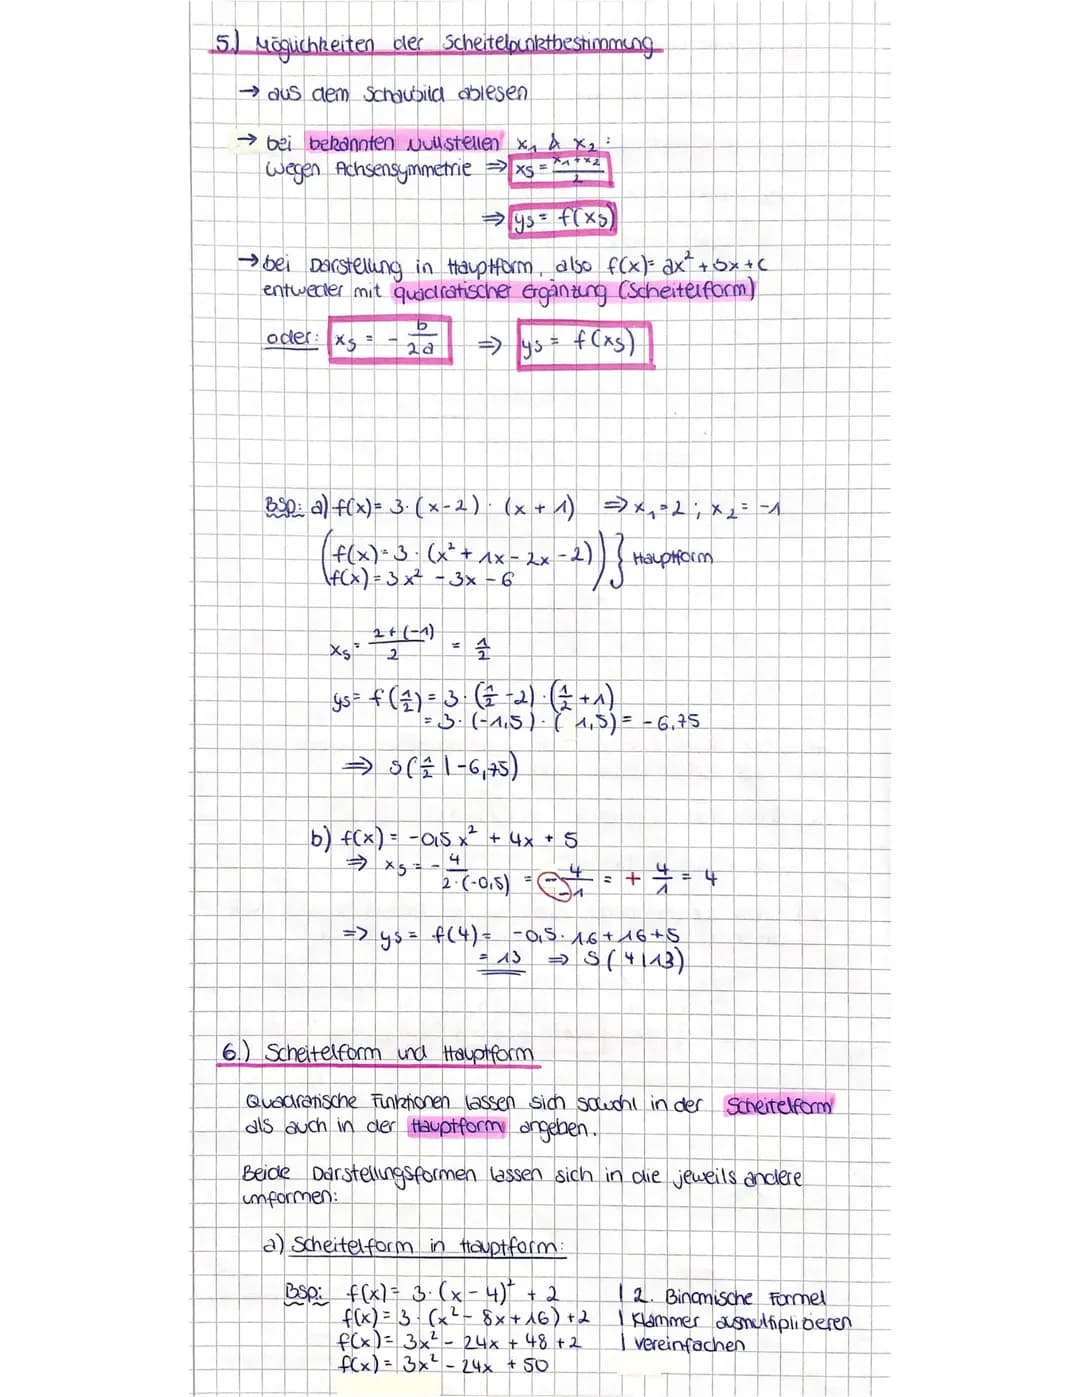 5.) Möglichkeiten der Scheitelpunktbestimmung
→ aus dem Schaubild ablesen
→ bei bekannten Nullstellen x₁ & x₂ :
Wegen Achsensymmetrie ⇒ xs = (x₁+x₂)/2
⇒ ys = f(xs)
→ bei Darstellung in Hauptform, also f(x)= ax² + bx + c
entweder mit quadratischer Ergänzung (Scheitelform)
oder: xs = - b/2a ⇒ ys = f(xs)
Bsp: a) f(x)= 3·(x-2)·(x+1) ⇒ x₁=2 ; x₂= -1
(f(x)=3·(x²+1x-2x-2)) } Hauptform
f(x)=3x² -3x -6
xs= (2+(-1))/2 = 1/2
ys= f(1/2) = 3·(1/2-2)·(1/2+1)
= 3·(-1,5)·(1,5) = -6,75
⇒ S(1/2 | -6,75)
b) f(x) = -0,5x² + 4x + 5
⇒ xs = - 4/(2·(-0,5)) = - 4/-1 = + 4/1 = 4
=> ys = f(4) = -0,5·16+16+5
= 13 ⇒ S(4|13)
6.) Scheitelform und Hauptform
Quadratische Funktionen lassen sich sowohl in der Scheitelform
als auch in der Hauptform angeben.
Beide Darstellungsformen lassen sich in die jeweils andere
umformen:
a) Scheitelform in Hauptform:
Bsp: f(x)= 3·(x-4)² + 2 | 2. Binomische Formel
f(x) = 3·(x²-8x+16)+2 | Klammer ausmultiplizieren
f(x)= 3x² - 24x + 48 +2 | vereinfachen
f(x) = 3x² - 24x + 50